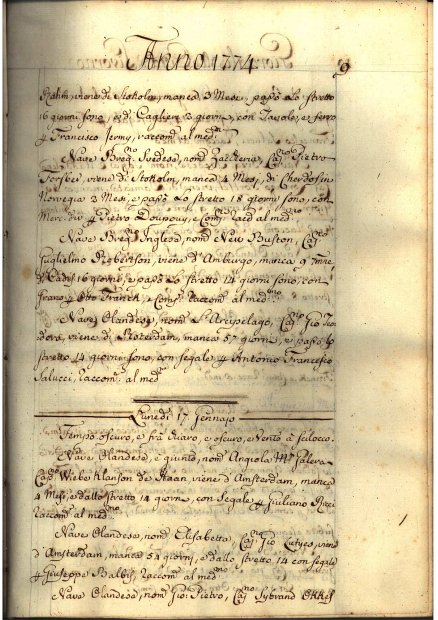 Anno 1774
9
Rahm, viene di Stokolm, manca 3 Mesi, passò lo stretto
16 giorni sono, e di Caglieri 3 giorni, con Tavole, e ferro
p Francesco Jermy, raccom al med.mo
Nave Sved̃ese, nom.ta Zaccheria, Cap. Pietro
viene di Stokolm, manca 4 Mesi, di
Norvegia 3 Mesi, e passò lo stretto 18 giorni sono, con
p Pietro Dupouy, e Comp. racc al med.mo
Nave Inglese, nom. New Buston, Cap.
Guglielmo Robertson, viene d'Amburgo, manca 9
di Cadis 16 giorni, e passò lo stretto 14 giorni sono, con
Grano p Otto Franck, e Comp. raccom. al med.mo
Nave Olandese, nom. L'Arcipelago, Cap. Gio
viene di Roterdam, manca 57 giorni, e passò lo
stretto 14 giorni sono, con segale p Antonio Francesco
Salucci, raccom. al med.mo
Lunedì 17 Gennaio
Tempo oscuro, e frà chiaro, e oscuro, e vento à scilocco.
Nave Olandese, è giunto, nom. Angiola M.a
Cap. Wiebe Klanson de Haan, viene d'Amsterdam, manca
4 Mesi, e dallo stretto 14 giorni, con Segale p Giuliano Ricci
raccom. al med.mo
Nave Olandese, nom. Elisabetta, Cap. Gio viene
d'Amsterdam, manca 54 giorni, e dallo stretto 14 con segale
p Giuseppe Balbi, raccom. al med.mo
Nave Olandese, nom. Gio: Pietro, Cap. Sybrand Okkes